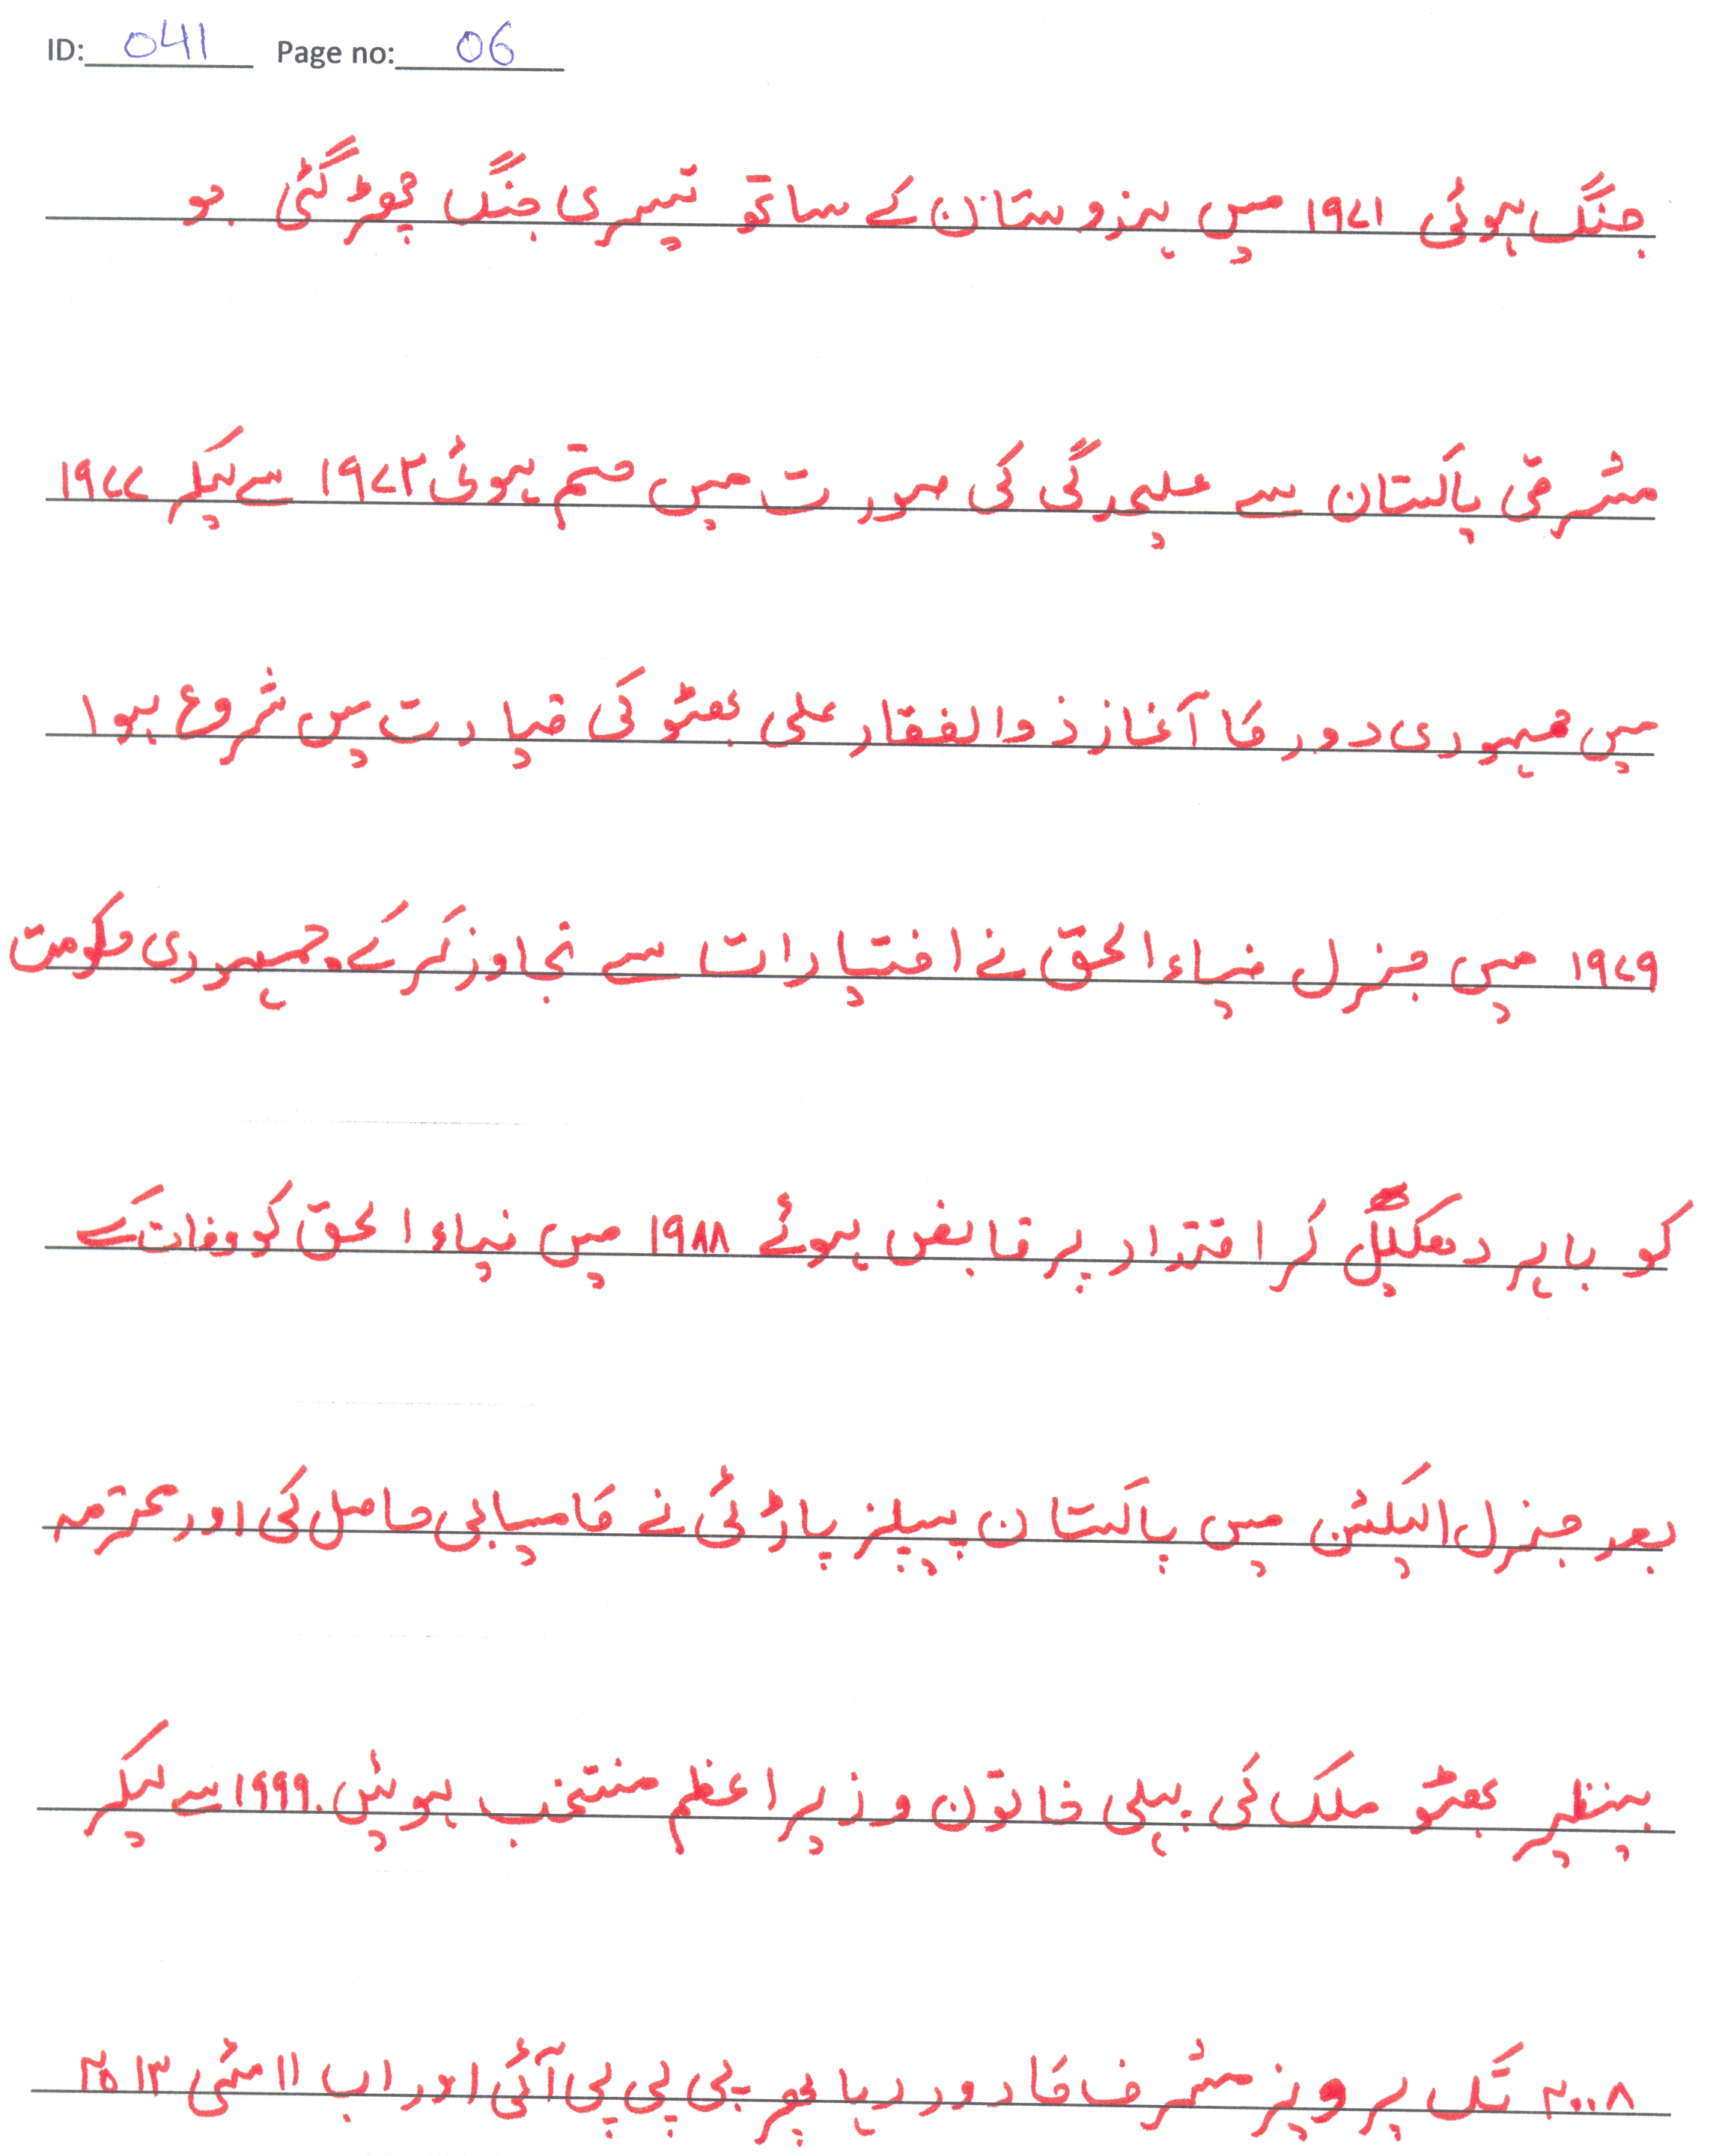 ID: 041 Page no: 06
جنگ ہوئی ۱۹۷۱ میں ہندوستان کے ساتھ تیسری جنگ چھڑ گئی جو
مشرقی پاکستان سے علیحدگی کی صورت میں ختم ہوئی ۱۹۷۲ سے لیکر ۱۹۷۷
میں جمہوری دور کا آغاز ذوالفقار علی بھٹو کی قیادت میں شروع ہوا
۱۹۷۹ میں جنرل ضیاءالحق نے اختیارات سے تجاوز کر کے جمہوری حکومت
کو باہر دھکیل کر اقتدار پر قابض ہوئے ۱۹۸۸ میں ضیاءالحق کو وفات کے
بعد جنرل الیکشن میں پاکستان پیپلز پارٹی نے کامیابی حاصل کی اور محترمہ
بینظیر بھٹو ملک کی پہلی خاتون وزیر اعظم منتخب ہوئیں. ۱۹۹۹ سے لیکر
۲۰۰۸ تک پرویز مشرف کا دور رہا پھر پی پی پی آئی اور اب ۱۱ مئی ۲۰۱۳